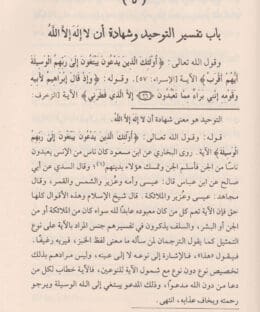 (٥)
باب تفسير التوحيد وشهادة أن لا إله إلا الله
وقول الله تعالى: ﴿أُوْلَٰئِكَ الَّذِينَ يَدْعُونَ يَبْتَغُونَ إِلَىٰ رَبِّهِمُ الْوَسِيلَةَ
أَيُّهُمْ أَقْرَبُ﴾ الآية [الإسراء: ٥٧]. وقوله: ﴿وَإِذْ قَالَ إِبْرَاهِيمُ لِأَبِيهِ
وَقَوْمِهِ إِنَّنِي بَرَاءٌ مِّمَّا تَعْبُدُونَ ﴿٢٦﴾ إِلَّا الَّذِي فَطَرَنِي﴾ الآية [الزخرف:
التوحيد هو معنى شهادة أن لا إله إلا الله.
قوله: وقول الله تعالى: ﴿أُوْلَٰئِكَ الَّذِينَ يَدْعُونَ يَبْتَغُونَ إِلَىٰ رَبِّهِمُ
الْوَسِيلَةَ﴾ الآية. روى البخاري عن ابن مسعود كان ناس من الإنس يعبدون
ناسًا من الجن فأسلم الجن وتمسك هؤلاء بدينهم. وقال السدي عن أبي
صالح عن ابن عباس قال: عيسى وأمه وعُزير والشمس والقمر، وقال
مجاهد: عيسى وعُزير والملائكة. قال شيخ الإسلام وهذه الأقوال كلها
حق فإن الآية تعم كل من كان معبوده عابدًا لله سواء كان من الملائكة أو من
الجن أو البشر، والسلف يذكرون في تفسيرهم جنس المراد بالآية على نوع
التمثيل كما يقول الترجمان لمن سأله ما معنى لفظ الخبز، فيريه رغيفًا،
فيقول «هذا»، فالإشارة إلى نوعه لا إلى عينه، وليس مرادهم بذلك
تخصيص نوع دون نوع مع شمول الآية للنوعين، فالآية خطاب لكل من
دعا من دون الله مدعوا، وذلك المدعو يبتغي إلى الله الوسيلة ويرجو
رحمته ويخاف عذابه، انتهى.